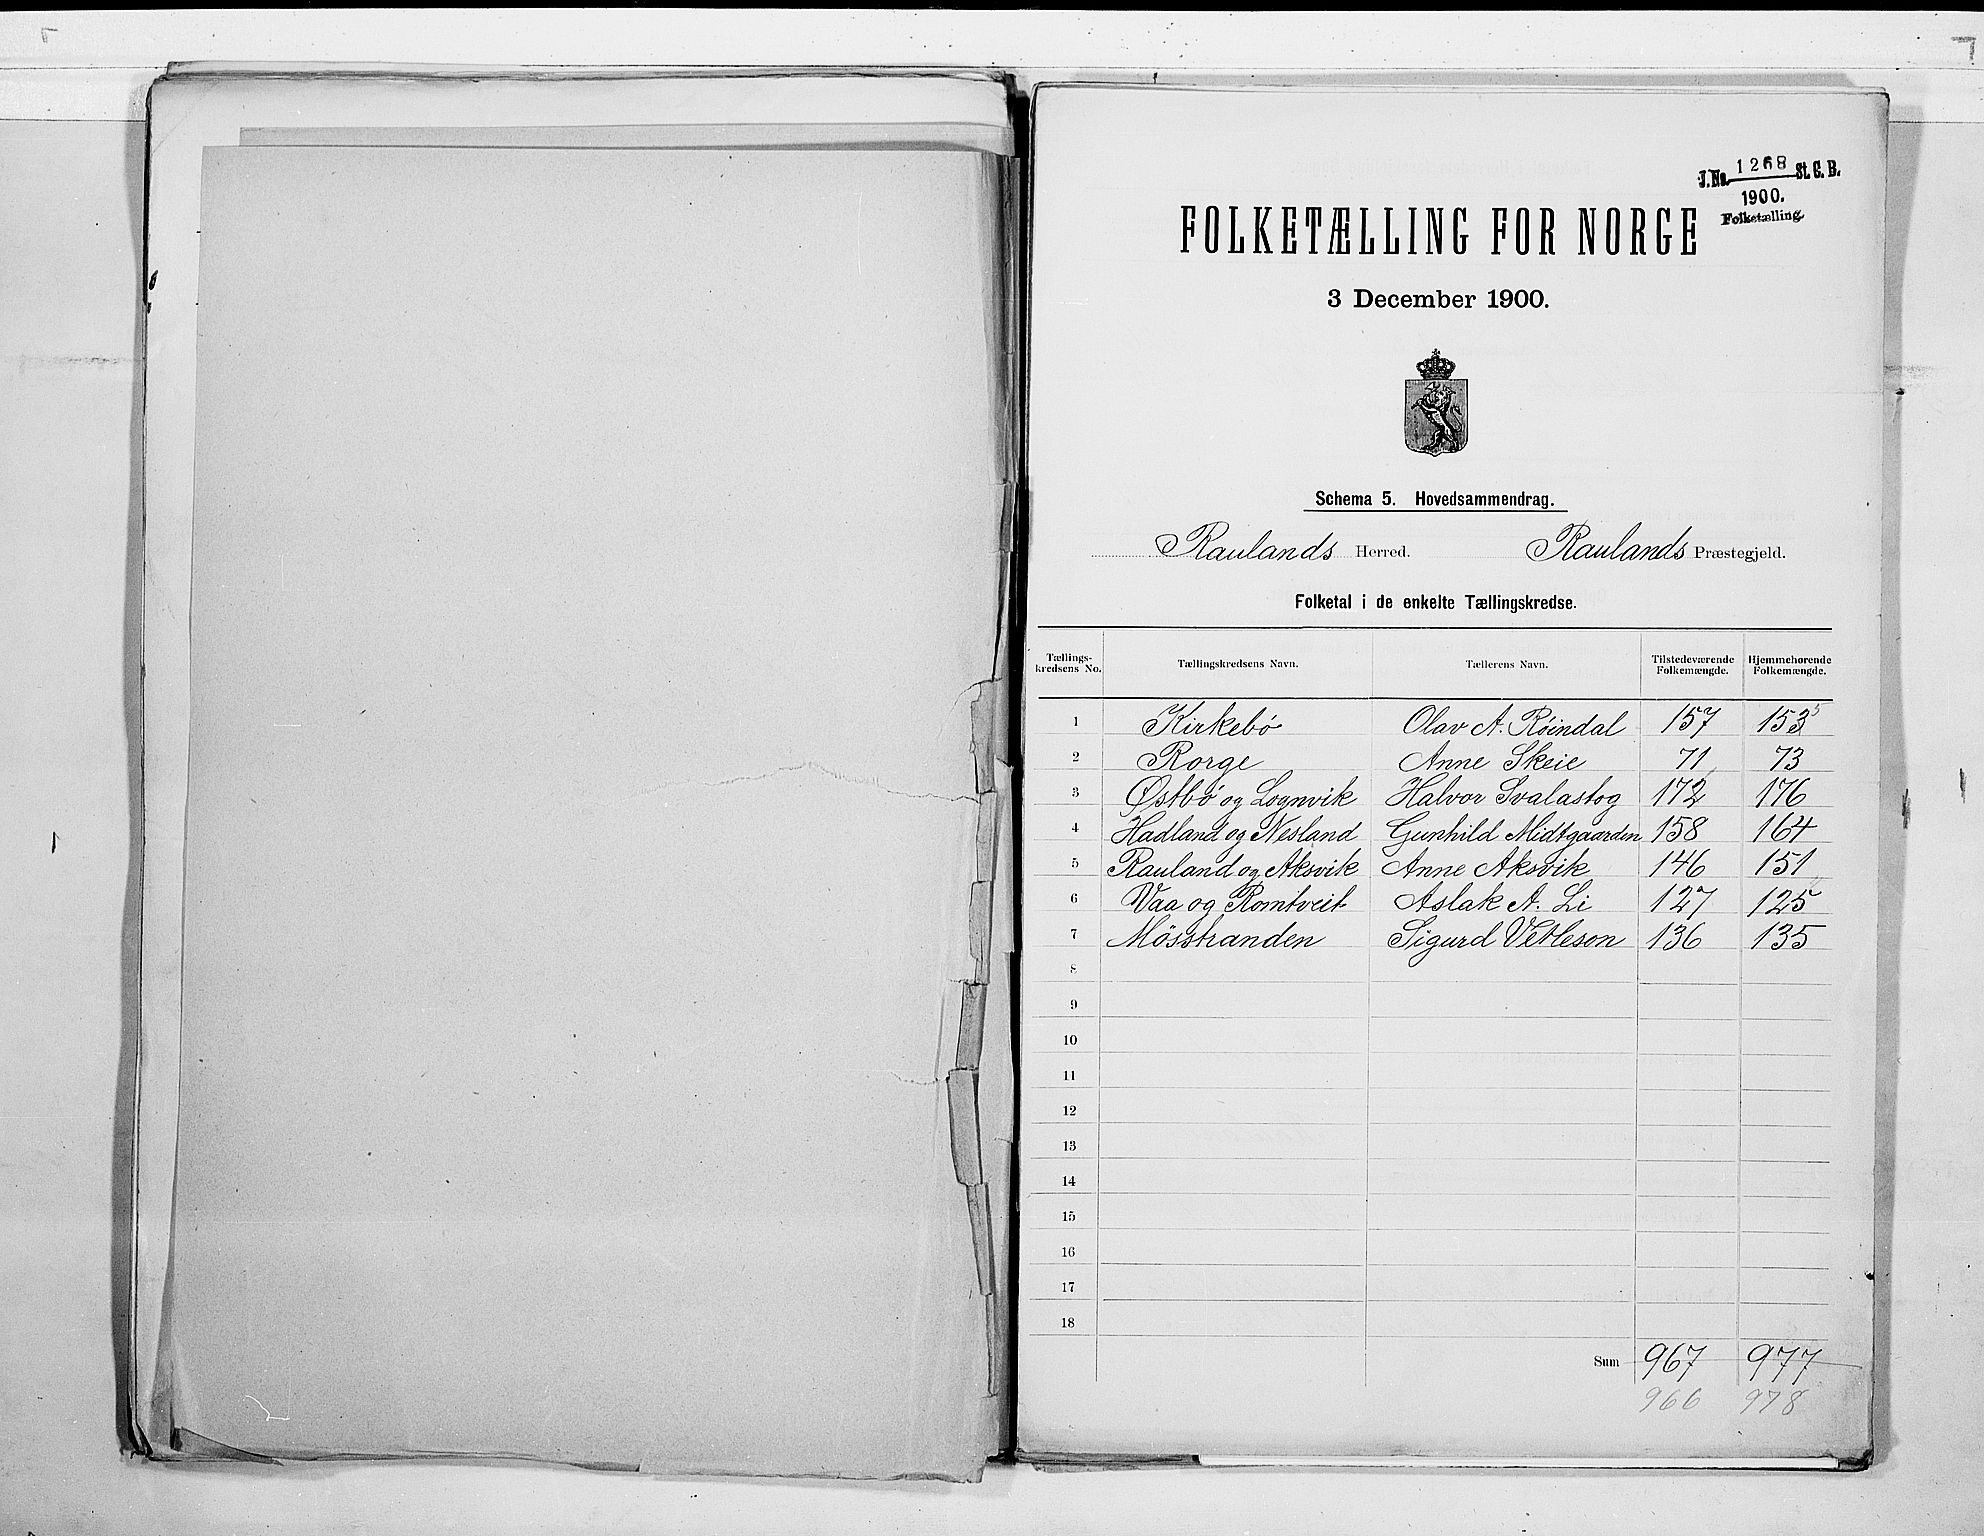 J.No. 1268 St. C. B.
1900.
Folketælling.
FOLKETÆLLING FOR NORGE
3 December 1900.
Schema 5. Hovedsammendrag.
Raulands Herred. Raulands Præstegjeld.
Folketal i de enkelte Tællingskredse.
Tællings-kredsens No. Tællingskredsens Navn. Tællerens Navn. Tilstedeværende Folkemængde. Hjemmehørende Folkemængde.
1 Kirkebö Olav A. Röindal 157 153 5
2 Rorge Anne Skeie 71 73
3 Østbö og Lognvik Halvor Svalastog 172 176
4 Hadland og Nesland Gunhild Midtgaarden 158 164
5 Rauland og Aksvik Anne Aksvik 146 151
6 Vaa og Romtveit Aslak A. Li 127 125
7 Mösstranden Sigurd Vetleson 136 135
8
9
10
11
12
13
14
15
16
17
18
Sum 967 977
966 978